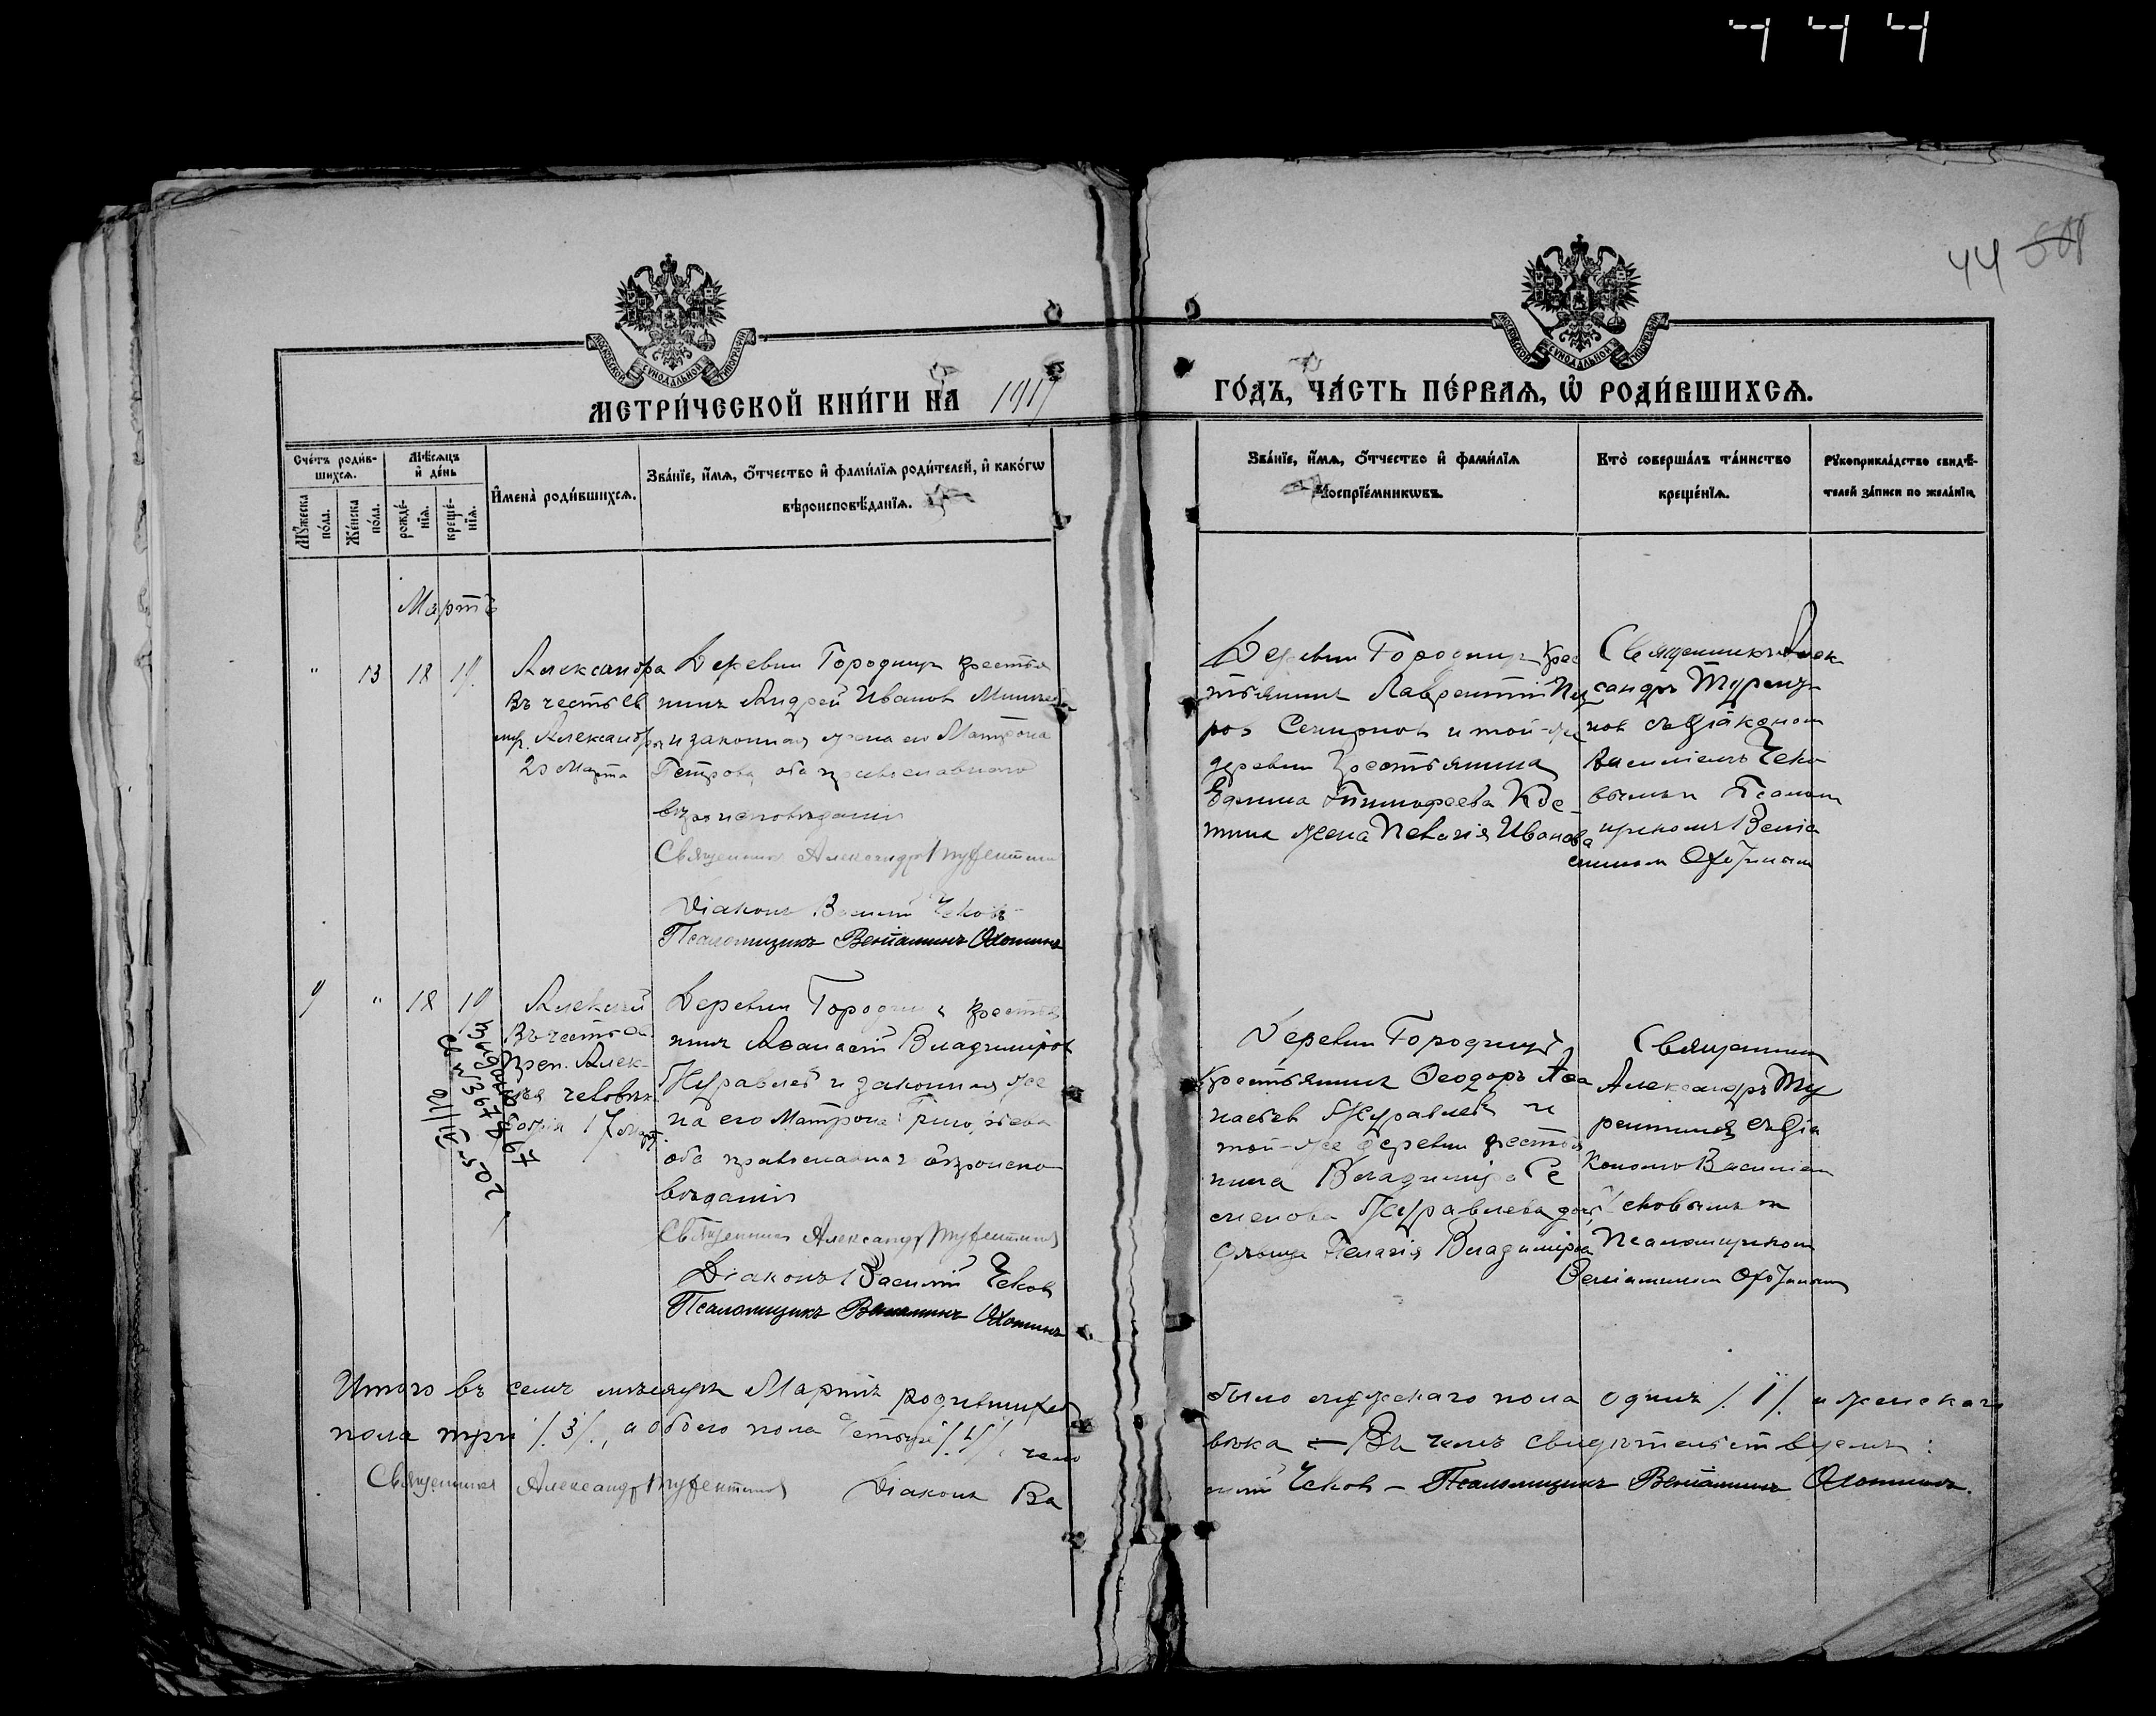 444
44 508
МОСКОВСКОЙ СУНОДАЛЬНОЙ ТИПОГРАФІИ
МОСКОВСКОЙ СУНОДАЛЬНОЙ ТИПОГРАФІИ
МЕТРИ́ЧЕСКОЙ КНИ́ГИ НА 1917
ГО́ДЪ, ЧА́СТЬ ПЕ́РВАѦ, Ѡ РОДИ́ВШИХСѦ.
Сче́тъ роди́в-
шихсѧ.
Мꙋ́жеска по́ла.
Же́нска по́ла.
Мѣ́сѧцъ
и҆ де́нь
рожде́-
нїѧ.
креще́-
нїѧ.
И҆мена̀ роди́вшихсѧ.
Зва́нїе, и҆́мѧ, ѻ҆́тчество и҆ фами́лїѧ роди́телей, и҆ како́гѡ
вѣроисповѣ́данїѧ.
Зва́нїе, и҆́мѧ, ѻ҆́тчество и҆ фами́лїѧ
воспрїе́мникѡвъ.
Кто̀ соверша́лъ та́инство
креще́нїѧ.
Рꙋкоприкла́дство свидѣ́-
телей за́писи по жела́нїю.
Мартъ
" 13 18 19.
Александра
Въ честь св
мц. Александры
20 Марта
Деревни Городищъ крестья
нинъ Андрей Ивановъ
и законная жена его Матрона
Петрова, оба православнаго
вѣроисповѣданія
Священникъ Александръ Турентинъ
Діаконъ Василій Чековъ
Псаломщикъ Веніаминъ Охотинъ
Деревни Городищъ крес
тьянинъ Лаврентій
ровъ и той-же
деревни крестьянина
Тимофеева
тина жена Пелагія Иванова
Священникъ Алек
сандръ Турен
съ Діакономъ
Василіемъ Чеко
вымъ и Псалом
щикомъ Веніа
миномъ Охотинымъ
9 " 18 19
Алексѣй
Въ честь св
преп. Алек-
сѣя человѣка
Божія 17 мар.
Деревни Городищъ крестья
нинъ Аѳанасій Владиміровъ
Журавлевъ и законная же
на его Матрона Тимоѳеева
оба православнаго вѣроиспо
вѣданія
Священникъ Александръ Турентинъ
Діаконъ Василій Чековъ
Псаломщикъ Веніаминъ Охотинъ
Деревни Городищъ
крестьянинъ Ѳеодоръ Аѳа
насьевъ Журавлевъ и
той-же деревни крестья
нина Владиміра Се
менова Журавлева дочь
дѣвица Пелагія Владимірова
Священникъ
Александръ Ту
рентинъ съ Діа
кономъ Василіем
Чековымъ и
Псаломщикомъ
Веніаминомъ Охотинымъ
Итого въ семъ мѣсяцѣ Мартѣ родившихся
было мужскаго пола одинъ /.1/. и женскаго
пола три /.3/., а обоего пола четыре /.4/. чело
вѣка — Въ чемъ свидѣтельствуемъ:
Священникъ Александръ Турентинъ Діаконъ Ва
силій Чековъ — Псаломщикъ Веніаминъ Охотинъ.